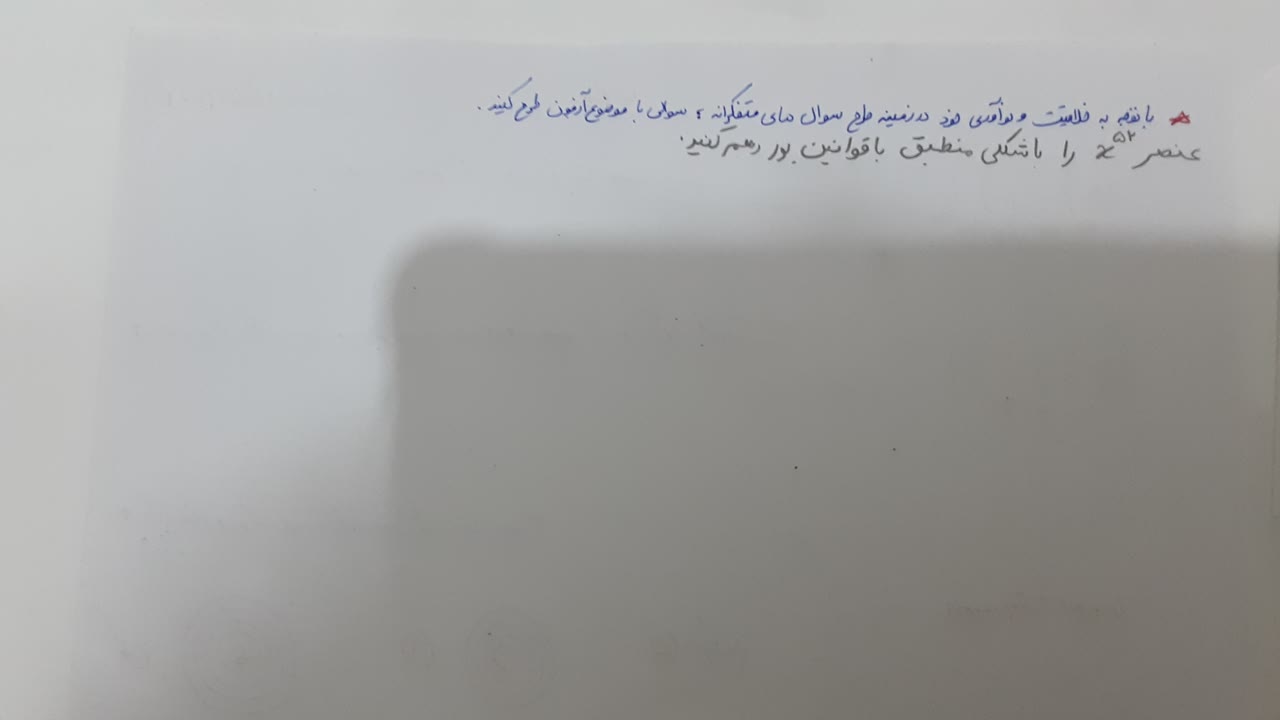 با توجه به خلاقیت و نوآوری خود در زمینه طرح سوال های متفکرانه ؛ سوالی با موضوع آزمون طرح کنید.
عنصر x⁵² را با شکلی منطبق با قوانین بور رسم کنید.